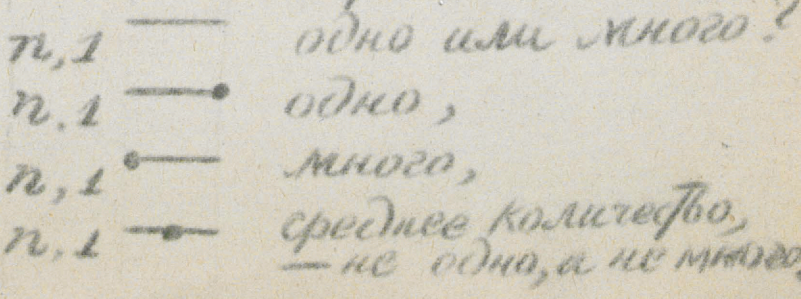 n,1 одно или много?
n.1 одно,
n,1 много,
n.1 среднее количество,
— не одно, и не много,